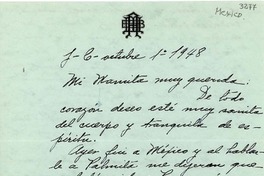 3277
Mexico
J-C-octubre 1º 1948
Mi Manuita muy querida:
De todo
corazón deseo esté muy sanita
del cuerpo y tranquila de es-
píritu.
Ayer fui a Méjico y al hablar-
le a Palmita me dijeran que